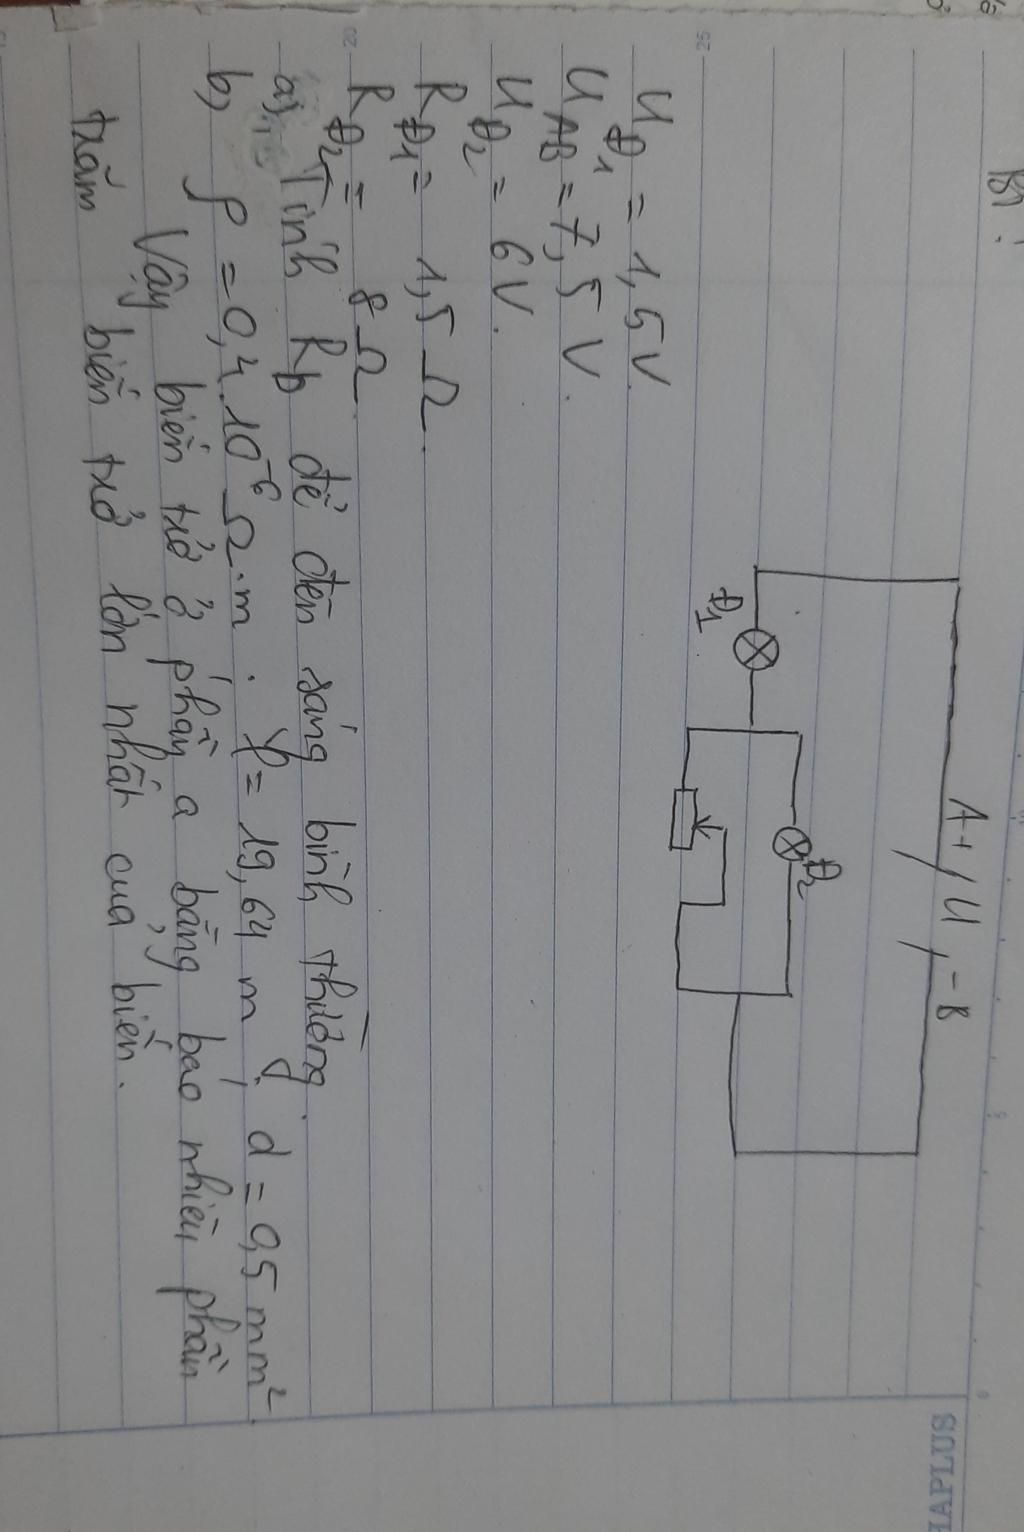 B1:
A+ U -B
Đ1
Đ2
UĐ1 = 1,5V
UAB = 7,5V.
UĐ2 = 6V.
RĐ1 = 1,5 Ω.
RĐ2 = 8 Ω.
a, Tính Rb để đèn sáng bình thường.
b, ρ = 0,4.10⁻⁶ Ω.m. l = 19,64 m, d = 0,5 mm².
Vậy biến trở ở phần a bằng bao nhiêu phần
trăm biến trở lớn nhất của biến.
25
20